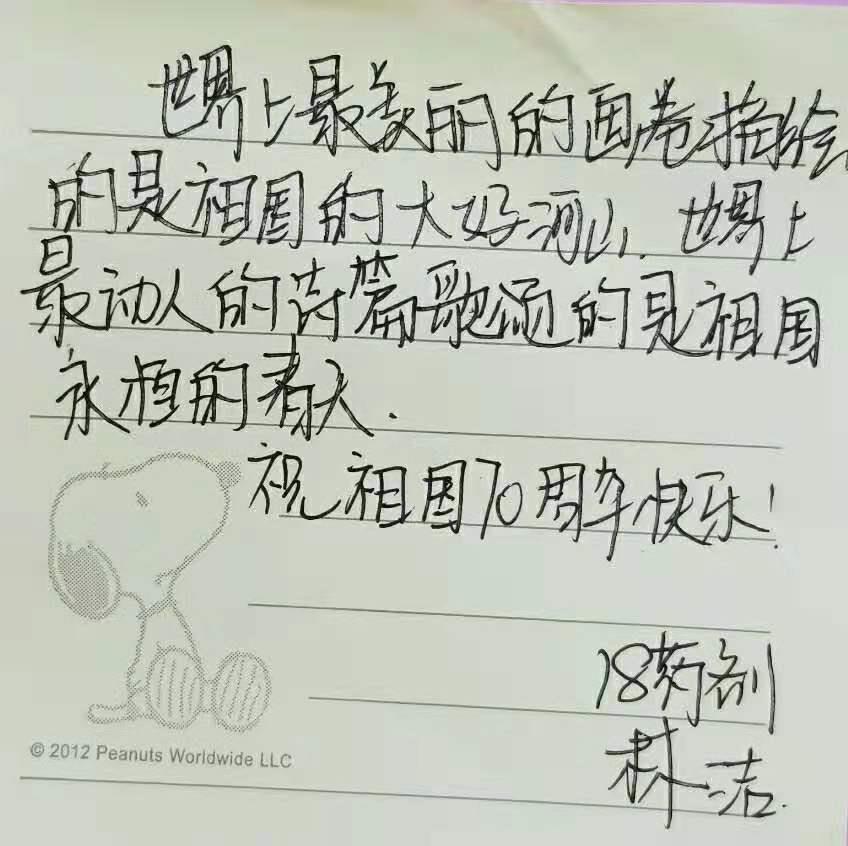 世界上最美丽的画卷描绘
的是祖国的大好河山.世界上
最动人的诗篇歌颂的是祖国
永恒的春天.
祝祖国70周年快乐!
18药剂
林洁.
© 2012 Peanuts Worldwide LLC